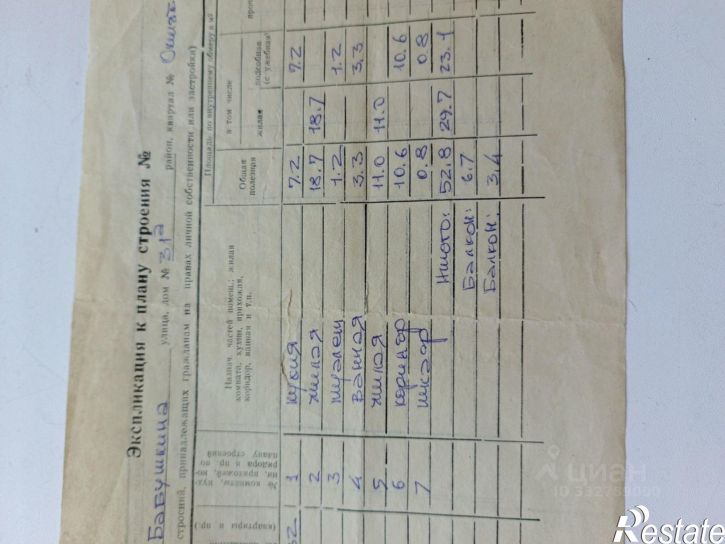 Экспликация к плану строения №
Бабушкина улица, дом № 31а район, квартал №
строений, принадлежащих гражданам на правах личной собственности или застройки)
(квартиры и пр.)
№ комнаты, кух-
ни, прихожей, ко-
ридора и пр. по
плану строений
Назнач. частей помещ.: жилая
комната, кухня, прихожая,
коридор, ванная и т.п.
Площадь по внутреннему обмеру в м²
Общая
полезная
в том числе
жилая
подсобная
(с уделная)
1 кухня 7.2 7.2
2 жилая 18.7 18.7
3 туалет 1.2 1.2
4 ванная 3.3 3.3
5 жилая 11.0 11.0
6 коридор 10.6 10.6
7 шкаф 0.8 0.8
Итого: 52.8 29.7 23.1
Балкон: 6.7
Балкон: 3,4
циан
Restate